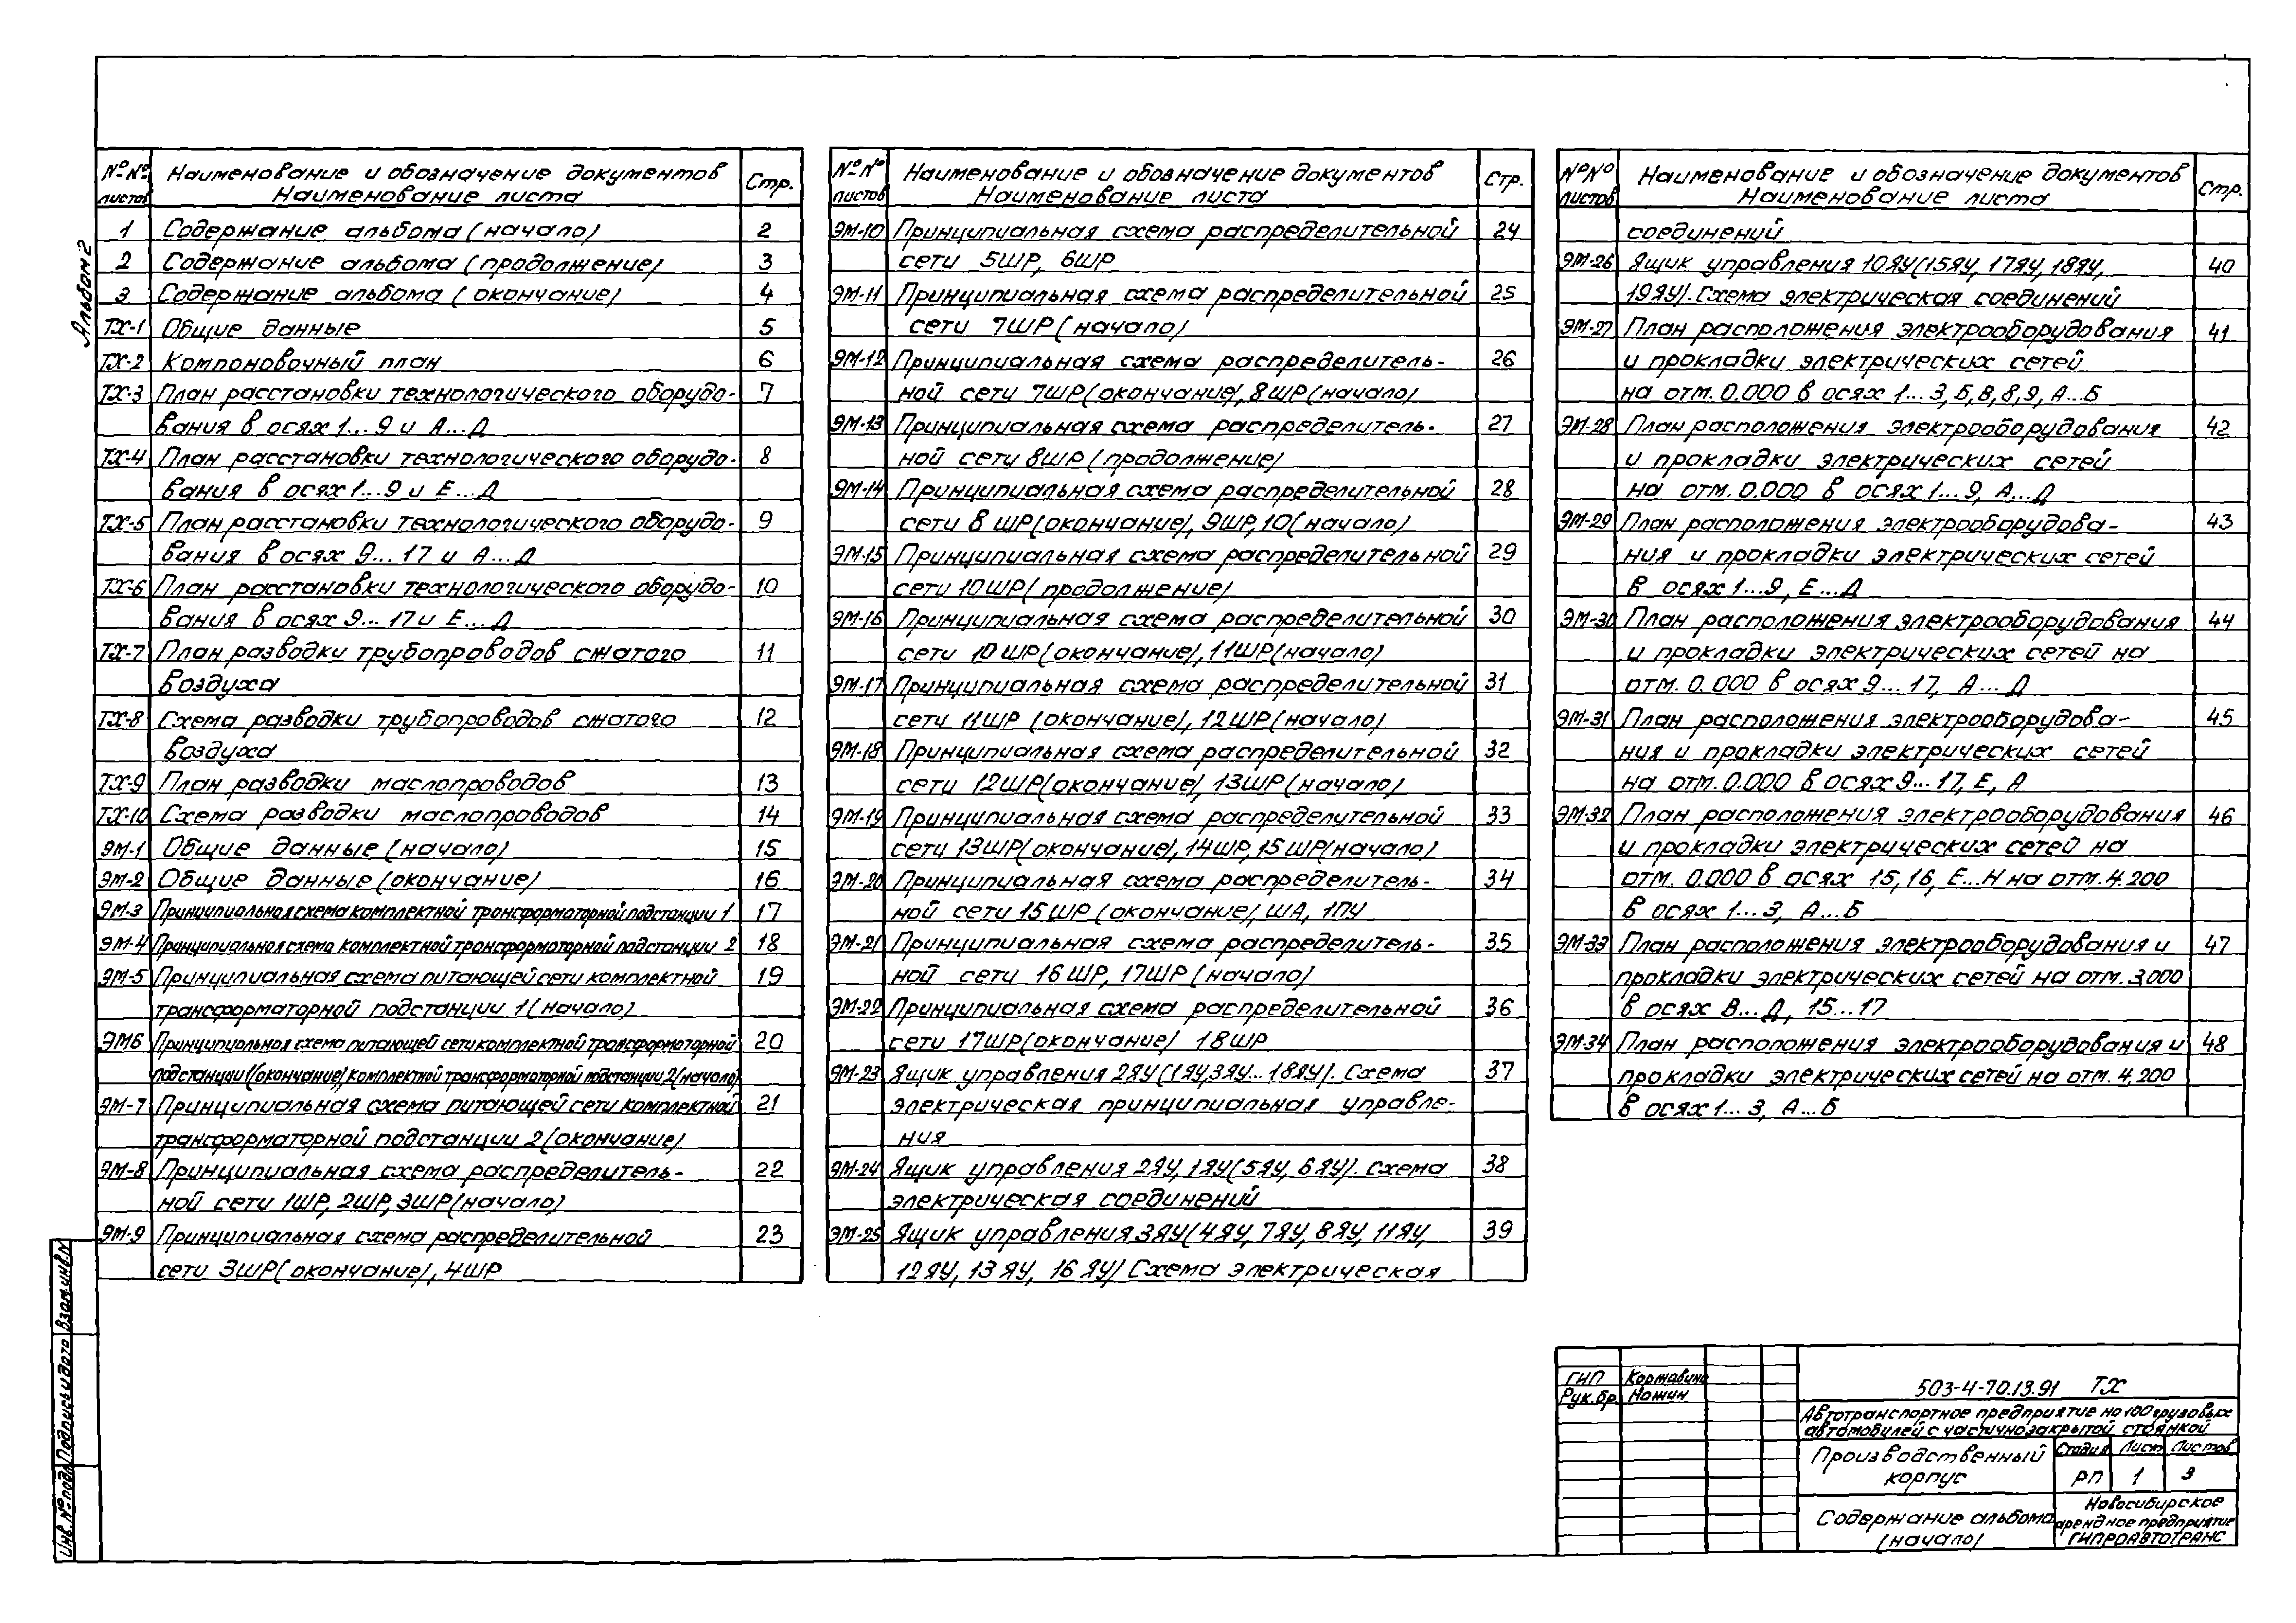 Альбом 2
№№ листов Наименование и обозначение документов Наименование листа Стр.
1 Содержание альбома (начало) 2
2 Содержание альбома (продолжение) 3
3 Содержание альбома (окончание) 4
ТХ-1 Общие данные 5
ТХ-2 Компоновочный план 6
ТХ-3 План расстановки технологического оборудо- 7
вания в осях 1...9 и А...Д
ТХ-4 План расстановки технологического оборудо- 8
вания в осях 1...9 и Е...Д
ТХ-5 План расстановки технологического оборудо- 9
вания в осях 9...17 и А...Д
ТХ-6 План расстановки технологического оборудо- 10
вания в осях 9...17 и Е...Д
ТХ-7 План разводки трубопроводов сжатого 11
воздуха
ТХ-8 Схема разводки трубопроводов сжатого 12
воздуха
ТХ-9 План разводки маслопроводов 13
ТХ-10 Схема разводки маслопроводов 14
ЭМ-1 Общие данные (начало) 15
ЭМ-2 Общие данные (окончание) 16
ЭМ-3 Принципиальная схема комплектной трансформаторной подстанции 1 17
ЭМ-4 Принципиальная схема комплектной трансформаторной подстанции 2 18
ЭМ-5 Принципиальная схема питающей сети комплектной 19
трансформаторной подстанции 1 (начало)
ЭМ6 Принципиальная схема питающей сети комплектной трансформаторной 20
подстанции 1(окончание) комплектной трансформаторной подстанции 2(начало)
ЭМ-7 Принципиальная схема питающей сети комплектной 21
трансформаторной подстанции 2 (окончание)
ЭМ-8 Принципиальная схема распределитель- 22
ной сети 1ШР, 2ШР, 3ШР (начало)
ЭМ-9 Принципиальная схема распределительной 23
сети 3ШР (окончание), 4ШР
№№ листов Наименование и обозначение документов Наименование листа Стр.
ЭМ-10 Принципиальная схема распределительной 24
сети 5ШР, 6ШР
ЭМ-11 Принципиальная схема распределительной 25
сети 7ШР (начало)
ЭМ-12 Принципиальная схема распределитель- 26
ной сети 7ШР (окончание), 8ШР (начало)
ЭМ-13 Принципиальная схема распределитель- 27
ной сети 8ШР (продолжение)
ЭМ-14 Принципиальная схема распределительной 28
сети 8 ШР (окончание), 9ШР, 10 (начало)
ЭМ-15 Принципиальная схема распределительной 29
сети 10ШР (продолжение)
ЭМ-16 Принципиальная схема распределительной 30
сети 10 ШР (окончание), 11ШР (начало)
ЭМ-17 Принципиальная схема распределительной 31
сети 11ШР (окончание), 12ШР (начало)
ЭМ-18 Принципиальная схема распределительной 32
сети 12ШР (окончание), 13ШР (начало)
ЭМ-19 Принципиальная схема распределительной 33
сети 13ШР (окончание), 14ШР, 15ШР (начало)
ЭМ-20 Принципиальная схема распределитель- 34
ной сети 15 ШР (окончание), ША, 1ПУ
ЭМ-21 Принципиальная схема распределитель- 35
ной сети 16 ШР, 17ШР (начало)
ЭМ-22 Принципиальная схема распределительной 36
сети 17ШР (окончание) 18ШР
ЭМ-23 Ящик управления 2ЯУ (1ЯУ, 3ЯУ... 18ЯУ). Схема 37
электрическая принципиальная управле-
ния
ЭМ-24 Ящик управления 2ЯУ, 1ЯУ (5ЯУ, 6ЯУ). Схема 38
электрическая соединений
ЭМ-25 Ящик управления 3ЯУ (4ЯУ, 7ЯУ, 8ЯУ, 11ЯУ, 39
12ЯУ, 13 ЯУ, 16 ЯУ) Схема электрическая
№№ листов Наименование и обозначение документов Наименование листа Стр.
соединений
ЭМ-26 Ящик управления 10ЯУ (15ЯУ, 17ЯУ, 18ЯУ, 40
19ЯУ). Схема электрическая соединений
ЭМ-27 План расположения электрооборудования 41
и прокладки электрических сетей
на отм. 0.000 в осях 1...3, Б, В, 8, 9, А...Б
ЭМ-28 План расположения электрооборудования 42
и прокладки электрических сетей
на отм. 0.000 в осях 1...9, А...Д
ЭМ-29 План расположения электрооборудова- 43
ния и прокладки электрических сетей
в осях 1...9, Е...Д
ЭМ-30 План расположения электрооборудования 44
и прокладки электрических сетей на
отм. 0.000 в осях 9...17, А...Д
ЭМ-31 План расположения электрооборудова- 45
ния и прокладки электрических сетей
на отм. 0.000 в осях 9...17, Е, А
ЭМ-32 План расположения электрооборудования 46
и прокладки электрических сетей на
отм. 0.000 в осях 15, 16, Е...Н на отм. 4.200
в осях 1...3, А...Б
ЭМ-33 План расположения электрооборудования и 47
прокладки электрических сетей на отм. 3.000
в осях В...Д, 15...17
ЭМ-34 План расположения электрооборудования и 48
прокладки электрических сетей на отм. 4.200
в осях 1...3, А...Б
Взам.инв.№
Подпись и дата
Инв.№ подл
ГИП Коржавина
Рук.бр. Нажин
503-4-70.13.91 ТХ
Автотранспортное предприятие на 100 грузовых
автомобилей с частично закрытой стоянкой
Производственный
корпус
Стадия Лист Листов
РП 1 3
Содержание альбома
(начало)
Новосибирское
арендное предприятие
ГИПРОАВТОТРАНС